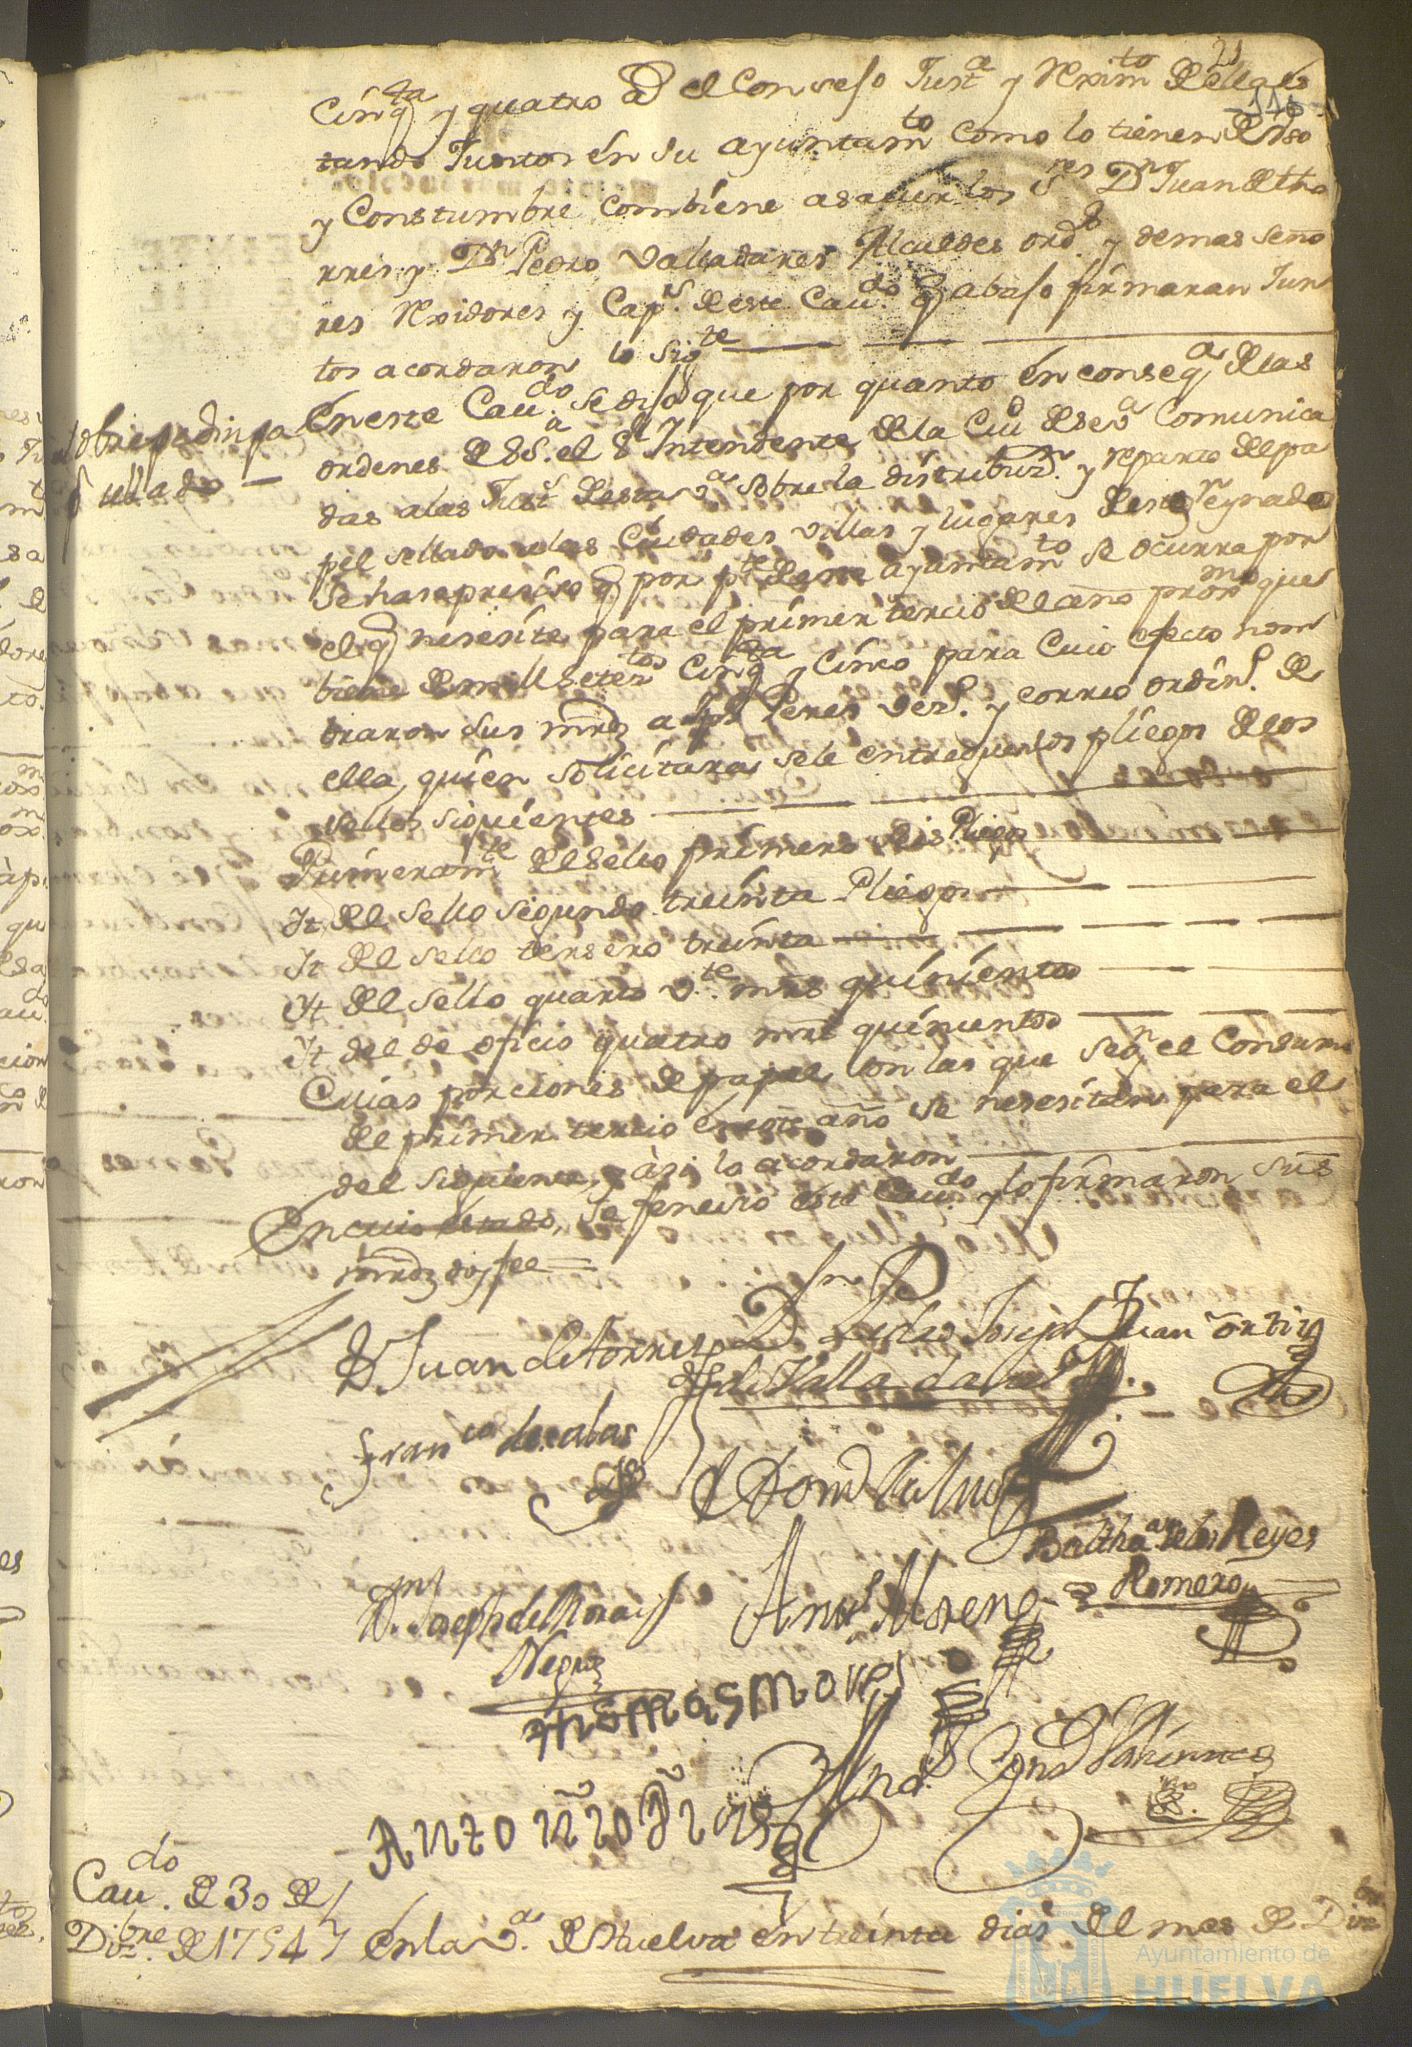 21
116
Cinq.ta y quatro a.d el Conse­so Just.a y Rexim.to de ella es
tando Juntos en su ayuntam.to como lo tienen de Uso
y Constumbre combiene asauer los S.res D.n Juan de tho
rres y D.n Pedro Valladares Alcaldes ord.s y demas Seño
res Rexidores y Cap.s de este Cau.do q abaso firmaran Jun
tos acordaron lo sig.te
sobre pedir pa
sellado
En este Cau.do se diso que por quanto en conseq.a de las
ordenes de S.S.a el S.r Intendente de la Ciu.d de Seu.a Comunica
das a las Just.s de esta V.a sobre la distribuz.n y reparto del pa
pel sellado a las Ciudades Villas y lugares de este Reynado
Se hase presiso q por p.te de este ayuntam.to se ocurra por
el q nesesite para el primer tercio del año prox.mo que
biene de mill Setez.tos Cinq.ta y Cinco para Cuio efecto nom
braron sus mrds a Peres Vez.o y correo ordin.o de
ella, quien solicitara se le entreguen los pliegos de los
sellos siguientes
Primeram.te del Sello primero seis Pliegos
It. del Sello segundo treinta Pliegos
It del sello tersero treinta
It del sello quarto V.te mans quinientos
It del de oficio quatro mans quinientos
Cuias porciones de papel son las que seg.n el Consumo
del primer tercio en este año se nesesitan para el
del siguiente, y asi lo acordaron
En cuio estado, se fenecio este Cau.do y lo firmaron sus
mrds doy fee
D. Juan de torres
D.n Pedro Joseph
de Valladares
Juan ortiz
Fran.co de
D Dom.o
Balthas.ar de los Reyes
Romero
D.n Joseph de
Negro
Ant.o Moreno
thomas mores
Antonio
Cau.do de 30 de
Diz.bre de 1754
En la V.a de Huelva en treinta dias del mes de Diz.bre
Ayuntamiento de
HUELVA